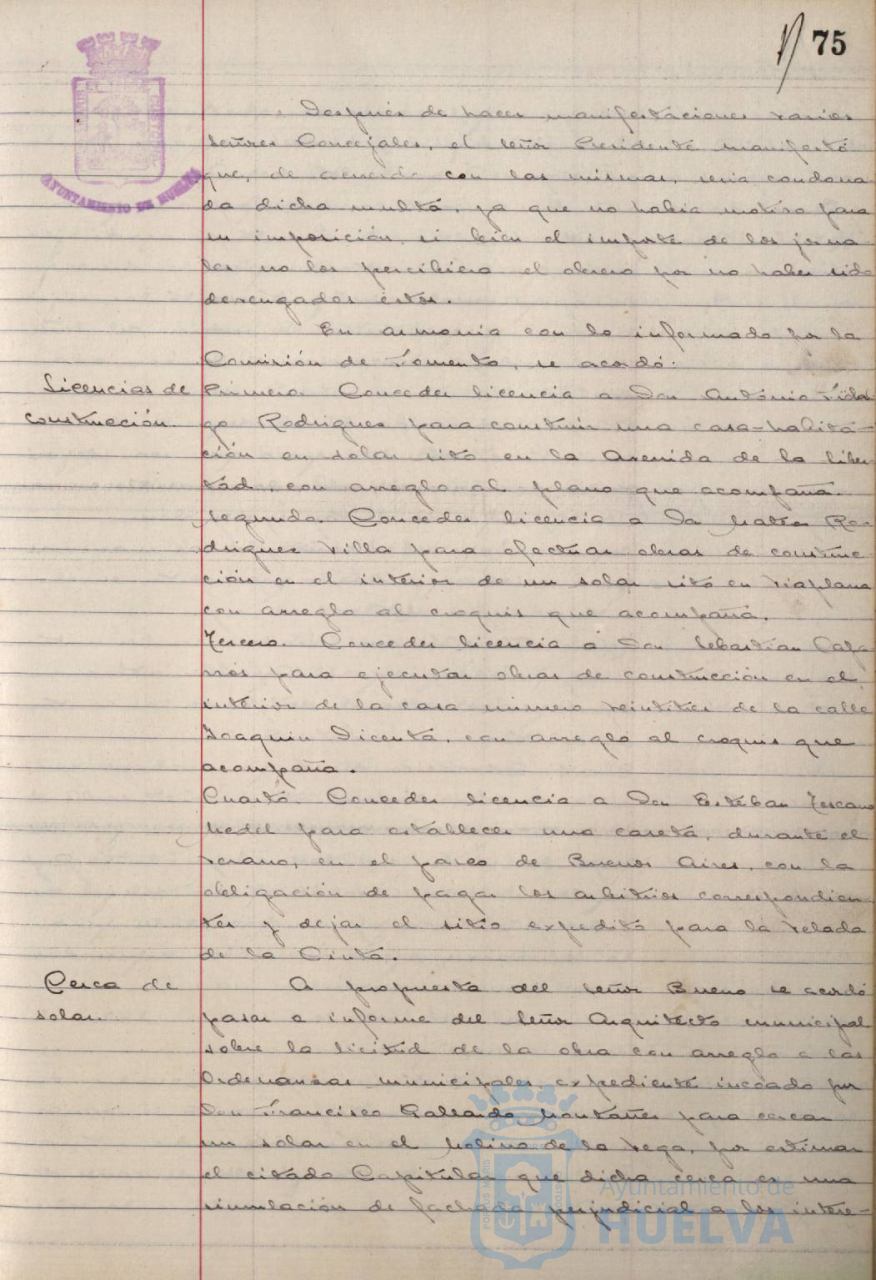 75
AYUNTAMIENTO DE HUELVA
Después de hacer manifestaciones varios
señores Concejales, el señor Presidente manifestó
que, de acuerdo con las mismas, seria condona
da dicha multa, ya que no habia motivo para
su imposición, si bien el importe de los jorna
les no los percibiera el obrero por no haber sido
devengados éstos.
En armonia con lo informado por la
Comisión de Fomento, se acordó:
Licencias de
construcción.
Primero. Conceder licencia a Don António Fidal
go Rodrigues para construir una casa-habita-
ción en solar sito en la Avenida de la Liber
tad, con arreglo al plano que acompaña.
Segundo. Conceder licencia a Da Ro-
driguez Villa para efectuar obras de construc
ción en el interior de un solar sito en Viaplana
con arreglo al croquis que acompaña.
Tercero. Conceder licencia a Don Sebastian
para ejecutar obras de construcción en el
interior de la casa número veintitres de la calle
Joaquin Dicenta, con arreglo al croquis que
acompaña.
Cuarto. Conceder licencia a Don Esteban Toscano
Medel para establecer una caseta, durante el
verano, en el paseo de Buenos Aires, con la
obligación de pagar los arbitrios correspondien
tes y dejar el sitio expedito para la Velada
de la Cinta.
Cerca de
solar.
A propuesta del señor Bueno se acordó
pasar a informe del señor Arquitecto municipal
sobre la licitud de la obra con arreglo a las
Ordenanzas municipales, expediente incoado por
Don Francisco Gallardo Montañes para cercar
un solar en el Molino de la Vega, por estimar
el citado Capitular que dicha cerca es una
simulación de fachada perjudicial a los intere-
Ayuntamiento de
HUELVA